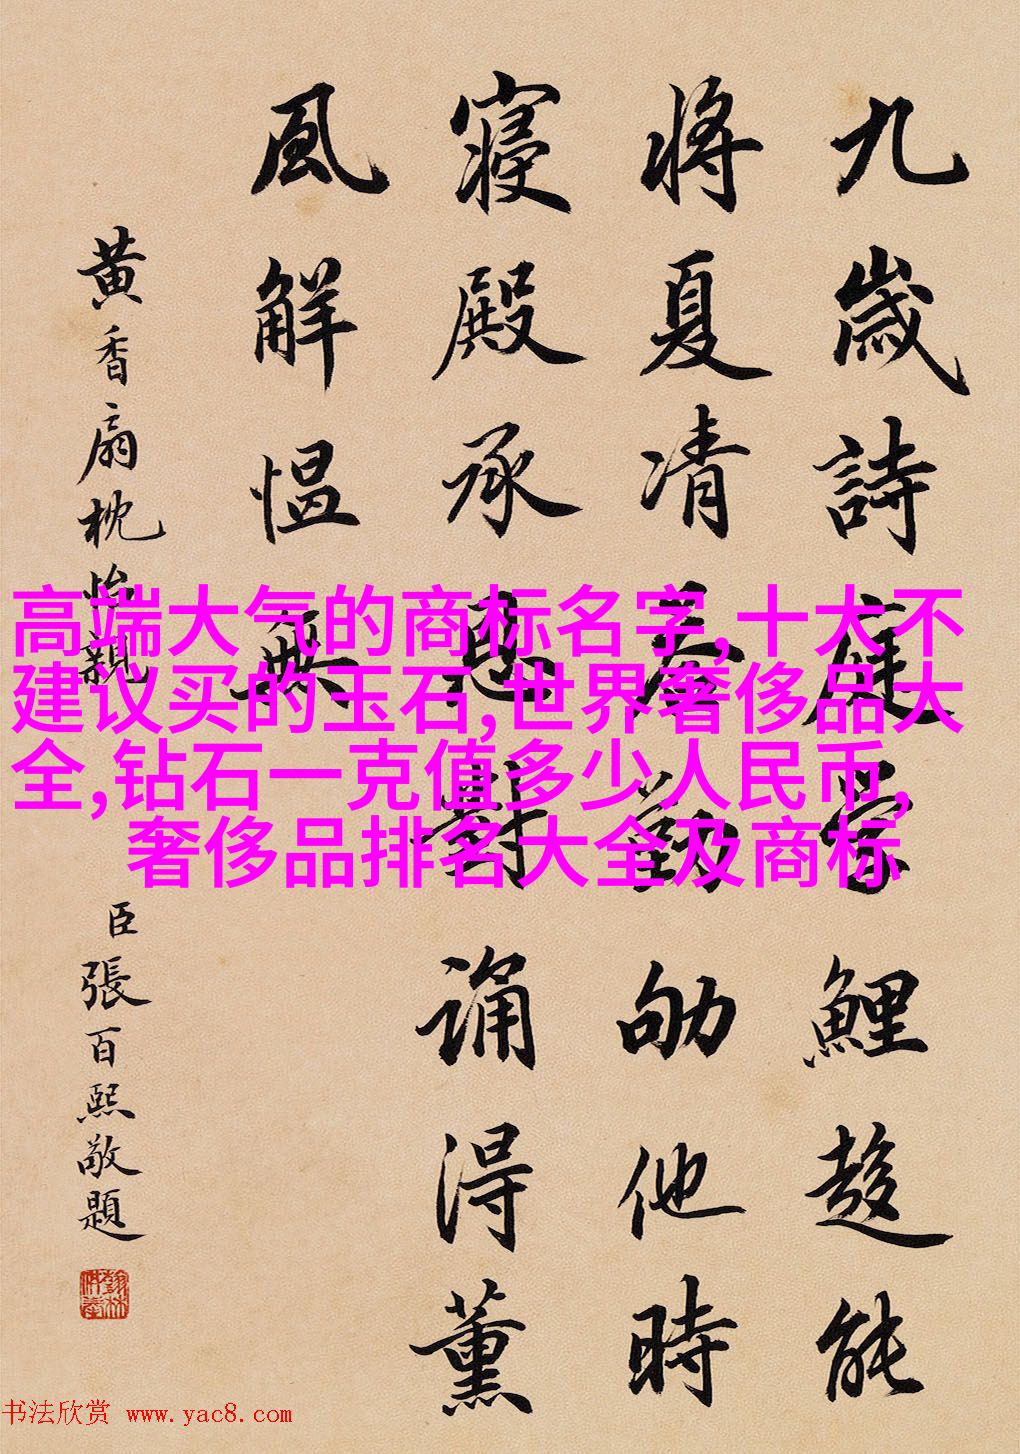 九歲詩庭學鯉趨能
將夏凊勤劬他時
寢殿承恩對誦得薰
風觧慍無
黃香扇枕怡親
臣張百熙敬題
高端大气的商标名字,十大不
建议买的玉石,世界奢侈品大
全,钻石一克值多少人民币,
奢侈品排名大全及商标
书法欣赏 www.yac8.com